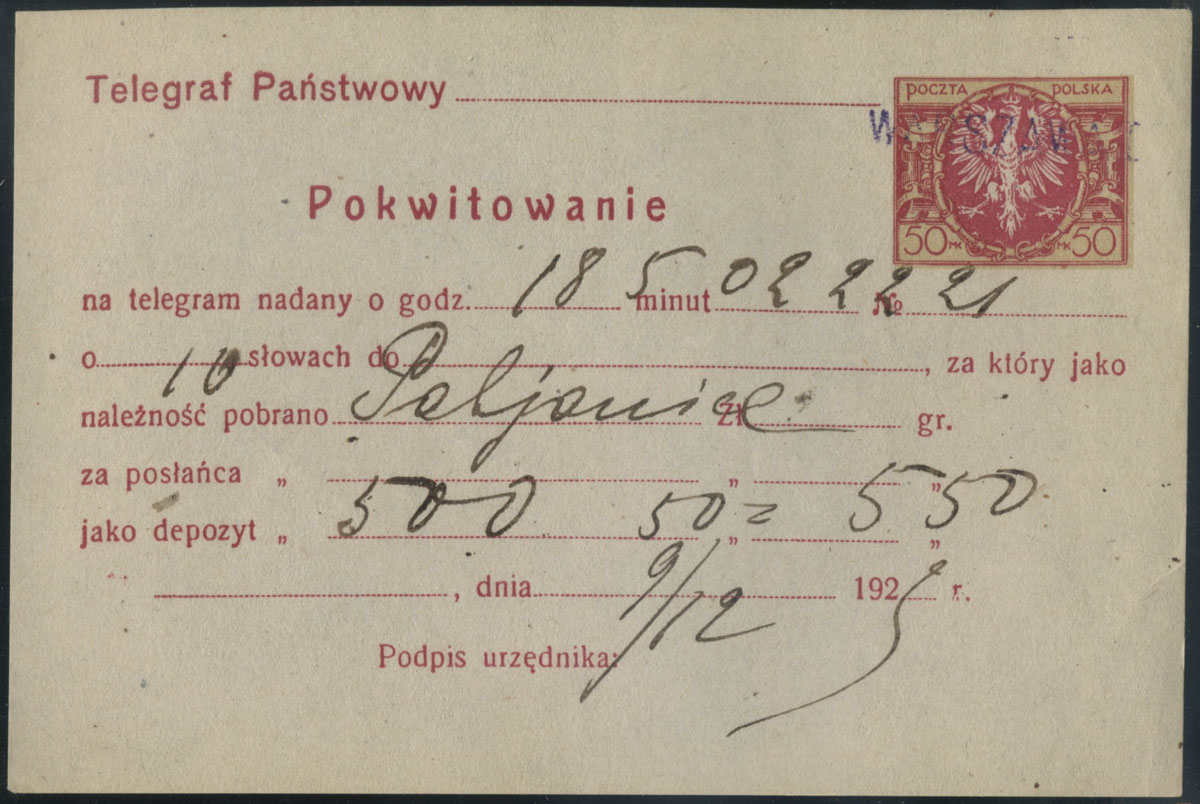 Telegraf Państwowy
POCZTA POLSKA
WARSZAWA
50 MK MK 50
Pokwitowanie
na telegram nadany o godz. 18 5 minut 02 22 № 221
o 10 słowach do Pabjanice, za który jako
należność pobrano Zł gr.
za posłańca „ „ „
jako depozyt „ 500 50 = 550 „ „
, dnia 9/12 192 r.
Podpis urzędnika: